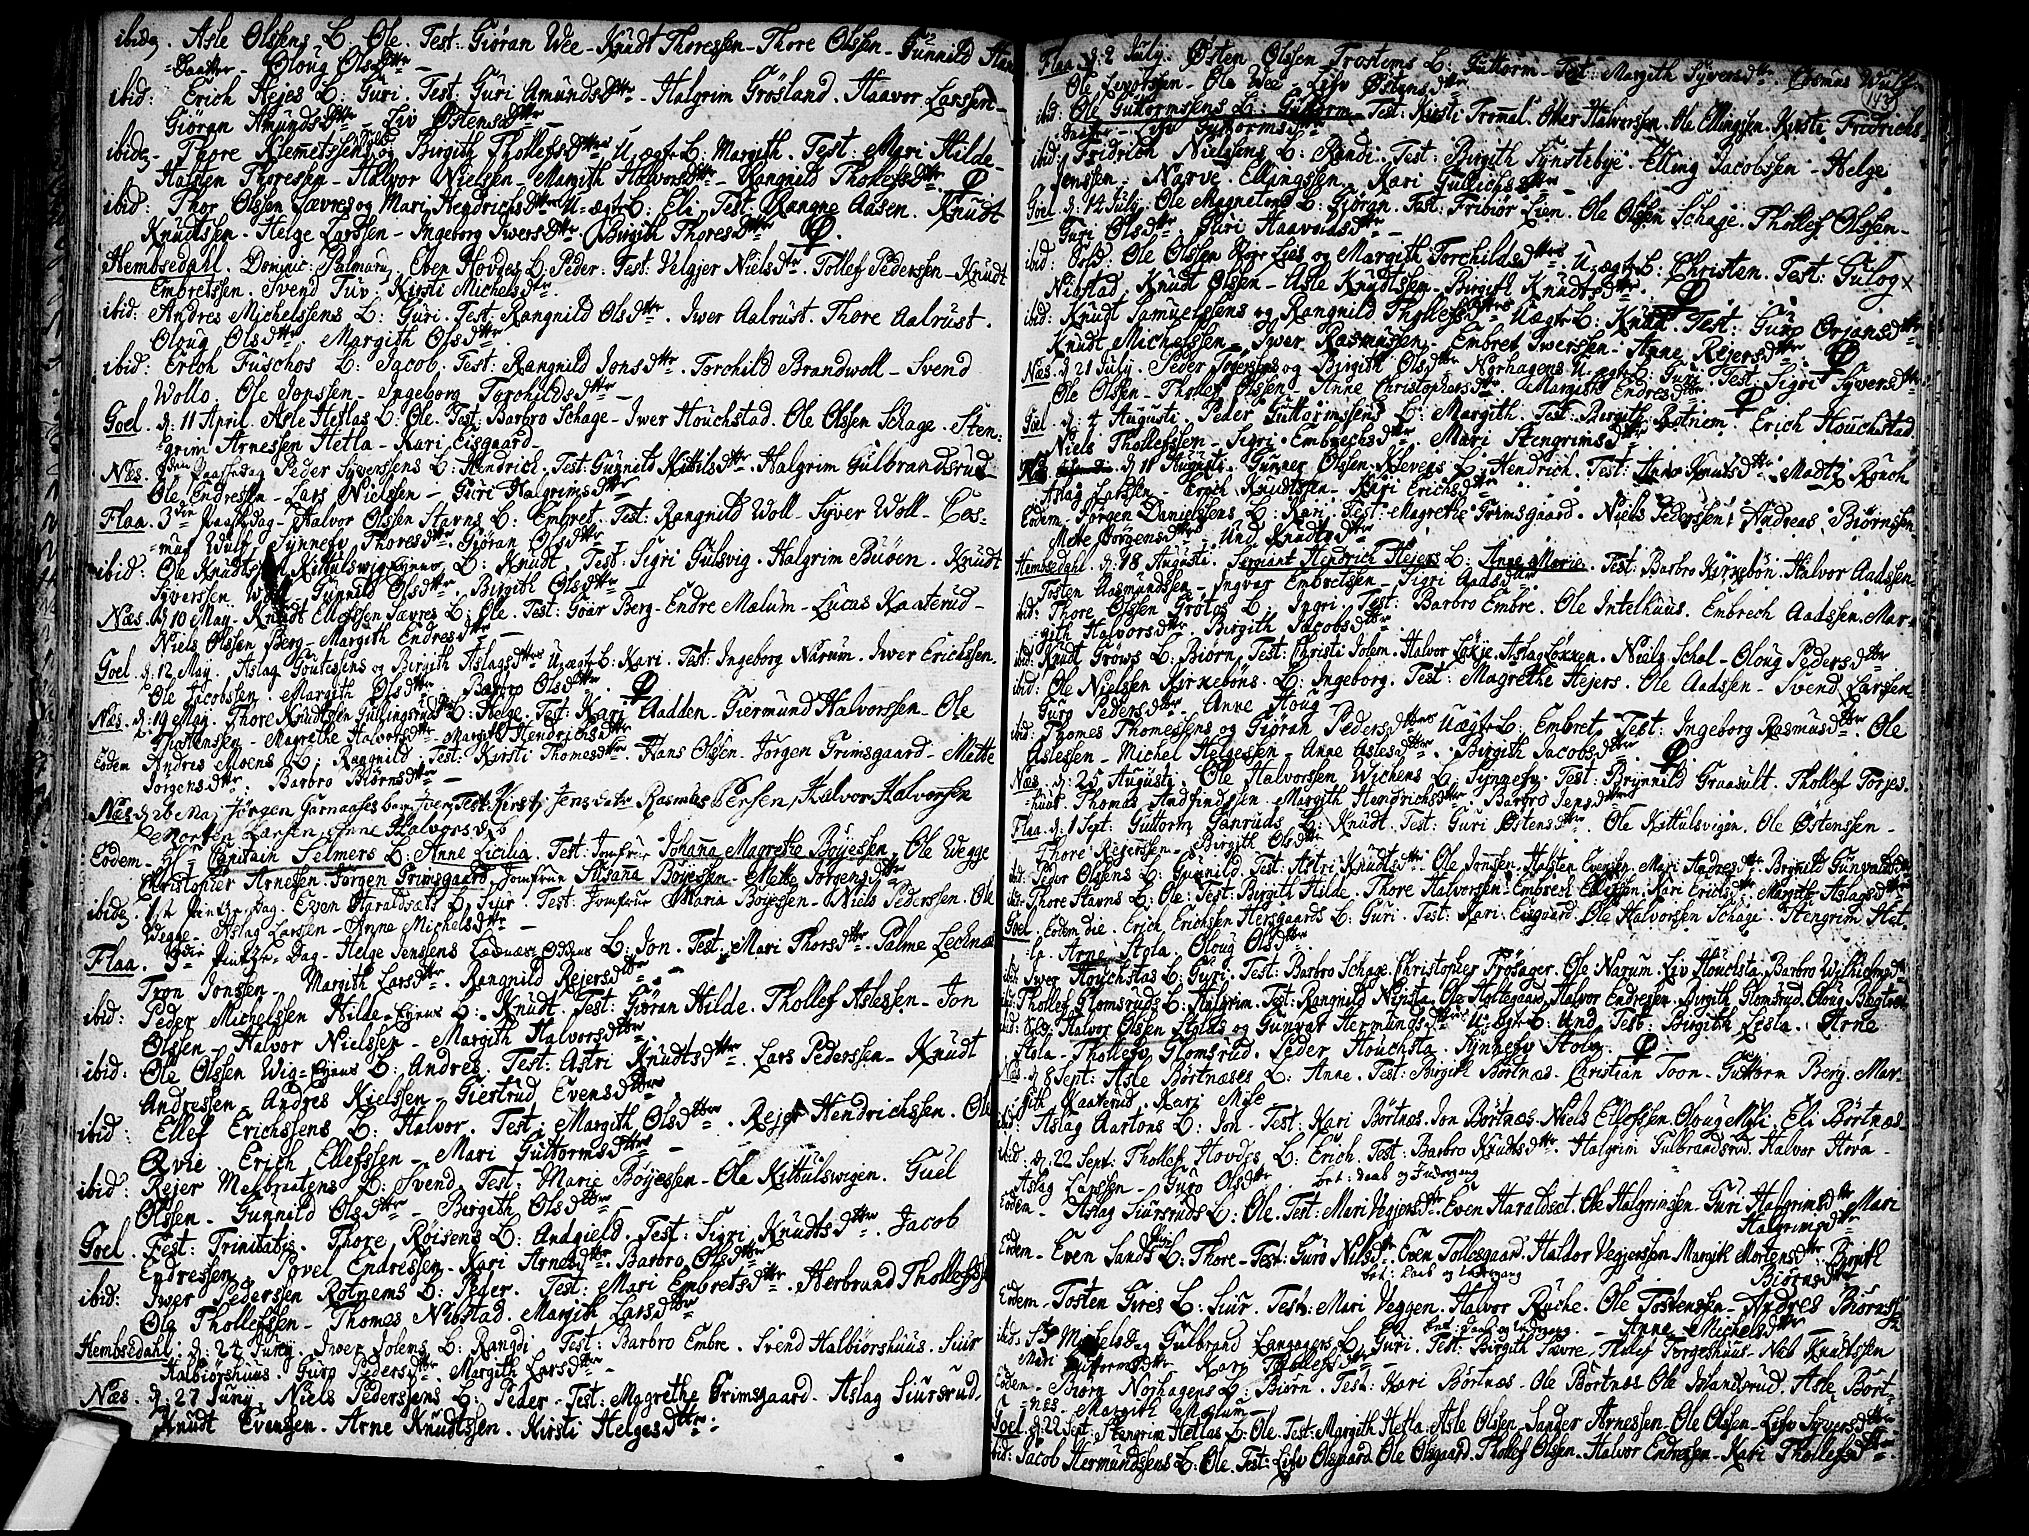 ibid. Asle Olsens B: Ole. Test: Giøran Wee - Knudt Thoressen - Thore Olssen - Gunnild
Oloug Olsdtr
ibid: Erich Hejes B: Guri. Test: Guri Amundsdtr - Halgrim Grösland. Haavor Larssen -
Giöran Amundsdtr - Liv Östensdtr
ibid. Thore Klemetssen og Birgith Thollefsdtrs U-ægte B: Margith. Test: Mari Hilde -
Halsten Thoressen - Halvor Nielsen - Margith Halvorsdtr - Rangnild Thollefsdtr
ibid: Thor Olssen Sævres og Mari Hendrichsdtrs U-ægte B: Eli. Test: Rangne Aasen. Knudt
Knudtsen - Helge Larssen - Ingeborg Iwersdtr - Birgith Thoresdtr
Hembsedahl. Dominic: Palmarum. Even Hovdes B: Peder. Test: Velgjer Nielsdtr. Tollef Pedersen - Knudt
Embretssen. Svend Tuv - Kirsti Michelsdtr
ibid: Andres Michelssens B: Guri. Test: Rangnild Olsdtr. Iwer Aalrust. Thore Aalrust.
Oloug Olsdtr Margith Olsdtr
ibid: Erich Tuschos B: Jacob. Test: Rangnild Jonsdtr. Torchild Brandwoll - Svend
Wollo. Ole Jonssen - Ingeborg Torchildsdtr
Goel. d: 11 April. Asle Hetlas B: Ole. Test: Barbro Schage - Iwer Houchstad. Ole Olssen Schage. Sten-
grim Arnessen Hetla - Kari Eisgaard
Næs. 2den Paaskedag Peder Syverssens B: Hendrich. Test: Gunnild Kittilsdtr. Halgrim Gulbrandsrud
Ole Endressen - Lars Nielssen - Guri Halgrimsdtr
Flaa. 3die Paaskedag - Halvor Olssen Stavns B: Embret. Test: Rangnild Woll - Syver Woll - Cos-
mus Wulf. Synnefv Thoresdtr. Giøran Olsdtr
ibid: Ole Knudtsen Kittulswig Ejens B: Knudt. Test: Sigri Gulsvig. Halgrim Buöen. Knudt
Syverssen Gunnild Olsdtr. Birgith Olsdtr
Næs. d: 10 May - Knudt Ellefssen Sævres B: Ole. Test: Goar Berg - Endre Mælum - Lucas Kaaterud -
Niels Olssen Berg - Margith Endresdtr
Goel. d: 12 May. Aslag Goutesens og Birgith Aslagsdtrs U-ægte B: Kari. Test: Ingeborg Narum. Iwer Erichssen.
Ole Jacobssen. Margith Olsdtr. Barbro Olsdtr
Næs. d: 19 May. Thore Knudtssen Gullingsruds B: Helge. Test: Kari Aadden - Giermund Halvorssen - Ole
Thostensen - Magrethe Halvorsdtr. Margit Hendrichsdtr
Eodem Andres Moens B: Rangnild. Test: Kirsti Thomesdtr. Hans Olssen. Jörgen Grimsgaard - Mette
Jorgensdtr. Barbro Biörnsdtr
Næs d: 26 Maj Jörgen Garnaases barn Iver, Test: Kirsti Jensdatr Rasmus Persen, Halvor Halvorsen
Morten Larsen, Anne Halvorsd.
Eodem - Hr Capitain Selmers B: Anne Cicilia. Test: Jomfrue Johana Magrethe Böyessen - Ole Wegge
Christopher Arnessen. Jørgen Grimsgaard, Jomfrue Susana Böyessen - Mette Jörgensdtr
ibid. 1st Pintze Dag. Even Haraldsæts B: Siur. Test: Jomfrue Maria Böyessen - Niels Pederssen. Ole
Wegge. Aslag Larssen - Anne Michelsdtr
Flaa. 3die Pintze-Dag - Helge Jenssens B: Jon. Test: Mari Thorsdtr. Palme
Tron Jonssen - Margith Larsdtr. Rangnild Rejersdtr
ibid: Peder Michelssen Hilde-Ejens B: Knudt. Test: Giöran Hilde. Thollef Aslessen - Jon
Olssen - Halvor Nielssen - Margith Halvorsdtr
ibid: Ole Olssen Wig-Ejens B: Andres. Test: Astri Knudtsdtr - Lars Pederssen - Knudt
Andressen. Andres Kielssen - Giertrud Evensdtr
ibid: Ellef Erichssens B: Halvor. Test: Margith Olsdtr. Rejer Hendrichssen. Ole
Qvie. Erich Ellefssen - Mari Guttormsdtr
ibid: Rejer Melbraatens B: Svend. Test: Marie Böyessen - Ole Kittulswigen. Guel
Olssen - Gunnild Olsdtr - Birgith Olsdtr
Goel. Fest: Trinitatis. Thore Röisens B: Andgield. Test: Sigri Knudtsdtr. Jacob
Endressen. Povel Endressen. Kari Arnesdtr. Barbro Olsdtr
ibid: Iwer Pederssen Rotnems B: Peder. Test: Mari Embretsdtr. Herbrand Thollefss.
Ole Thollefssen - Thomes Nibstad. Margith Larsdtr
Hembsedahl. d: 24 Juny. Iwer Solems B: Rangdi. Test: Barbro Embre. Svend Halbiörshuus. Siur
Halbiörshuus. Guro Pedersdtr. Margith Larsdtr
Næs. d: 27 Juny. Niels Pederssens B: Peder. Test: Magrethe Grimsgaard. Aslag Siursrud.
Knudt Evensen. Arne Knudtssen. Kirsti Helgesdtr:
Flaa d: 2 July. Østen Olssen Trostems B: Guttorm. Test: Margith Syversdtr. Cosmus Wulf
143
Ole Ole Wee - Lifv Østensdtr
ibid: Ole Guttormsens B: Guttorm. Test: Kirsti Trommal. Otter Halvorssen. Ole Ellingssen. Kirsti Fridrichs-
Lifv Guttormsdtr
ibid: Fridrich Nielsens B: Randi. Test: Birgith Synstebye. Elling Jacobssen - Helge
Jenssen. Narve Ellingssen. Kari Gullichsdtr
Goel d: 14 July. Ole Magnetons B: Giøran. Test: Fribiör Lien. Ole Olssen Schage. Thollef Olssen -
Guri Olsdtr. Guri Haavoldsdtr
ibid: Ole Olssen Lies og Margith Torchildsdtrs U-ægte B: Christen. Test: Gulog
Nibstad. Knudt Olssen - Asle Knudtssen - Birgith Knudtsdtr.
ibid: Knudt Samuelssens og Rangnild Thollefsdtrs U-ægte B: Knud. Test: Guro Ørjansdtr
Knudt Michelssen - Iwar Rasmussen - Embret Iwersen - Anne Rejersdtr.
Næs. d: 21 July. Peder og Birgith Olsdtr Norhagens U-ægte B: Guri. Test: Sigri Syversdtr
Ole Olssen - Thollef Olssen - Anne Christophersdtr. Margith Endresdtr
Goel. d: 4 Augusti. Peder Guttormssens B: Margith. Test: Birgith Rotnem. Erich Houchstad
Niels Thollefssen - Sigri Embrechsdtr. Mari Stengrimsdtr
Næs d: 11 Augusti. Gunner Olssen Klevens B: Hendrich. Test: Anne Knutsdtr. Madtz Rouch
Aslag Larssen - Erich Knudtssen - Kari Erichsdtr
Eodem. Jørgen Danielssens B: Kari. Test: Magrethe Grimsgaard. Niels Pederssen. Andreas Biörnssen.
Mette Jörgensdtr. Und Knudtsdtr
Hembsedahl. d: 18 Augusti. Sergiant Hendrich Hejers B: Anne Marie. Test: Barbro Kirkebön. Halvor Aadssen.
Tosten Aasmundsen - Ingvar Embretsen - Sigri Aadsdtr
ibid: Thore Olssen Grötas B: Ingri. Test: Barbro Embre. Ole Intelhuus. Embrech Aadssen. Mar-
gith Halvorsdtr. Birgith Jacobsdtr.
ibid: Knudt Grows B: Biörn. Test: Christi Solem. Halvor Løkje. Aslag Løkken. Niels Schol - Oloug Pedersdtr
ibid: Ole Nielssen Kirkebøns B: Ingeborg. Test: Magrethe Hejers. Ole Aadssen - Svend Larssen
Guro Pedersdtr. Anne Houg
ibid: Thomes Thomessens og Giøran Pedersdtrs U-ægte B: Embret. Test: Ingeborg Rasmusdtr. Ole
Aslessen - Michel Helgessen - Anne Aslesdtr. Birgith Jacobsdtr.
Næs. d: 25 Augusti. Ole Halvorssen Wichens B: Synnefv. Test: Brynnild Graasult. Thollef Torjes-
huus. Thomas Andfindssen. Margith Hendrichsdtr. Barbro Jensdtr
Flaa. d: 1 Sept: Guttorm Gønruds B: Knudt. Test: Guri Østensdtr. Ole Kittulsvigen. Ole Østenssen -
Thore Rejerssen - Birgith Olsdtr
ibid: Peder Olsens B: Gunnild. Test: Astri Knudtsdtr. Ole Jonssen. Halsten Evensen. Mari Andresdtr. Brynild Gunvaldsdtr
ibid: Thore Stavns B: Ole. Test: Birgith Hilde. Thore Halvorsen - Embrech Kari Erichsdtr. Margith Aslagsdtr
Goel. Eodem die. Erich Erichsen Hersgaards B: Guri. Test: Kari Eisgaard. Ole Halvorsen Schage. Stengrim Het-
la. Arne Stola. Oloug Olsdtr
ibid: Iwer Houchstas B: Guri. Test: Barbro Schage. Christopher Frösager. Ole Narum. Liv Houchsta. Barbro Wilhelmsd.
ibid: Thollef Glomsruds B: Halgrim. Test: Rangnild Nipsta. Ole Holtegaard. Halvor Endresen. Birgith Glomsrud. Oloug
ibid: Halvor Olssen Stolas og Gunvar Hermundsdtrs U-ægte B: Und. Test: Birgith Lisla. Arne
Stola - Thollefv Glomsrud. Peder Houchsta. Synnefv Stola.
Næs. d: 8 Sept: Asle Börtnæses B: Anne. Test: Birgith Börtnæs. Christian Toon - Guttorm Berg. Mar-
gith Kaaterud. Kari
ibid: Aslag Aartons B: Jon. Test: Kari Börtnæs. Jon Börtnæs. Niels Ellefssen. Oloug Eli Börtnæs
ibid. d: 22 Sept: Thollef Hovdes B: Erich. Test: Barbro Knudtsdtr. Halgrim Gulbrandsrud. Halvor
Aslag Larssen - Guro Olsdtr. bet: daab og Indegang
Eodem - Aslag Siursruds B: Ole. Test: Mari Vegjersdtr. Even Haraldset. Ole Halgrimsen. Guri Halgrimsdtr Mari
Halgrimsdtr
Eodem - Even Sands B: Thore - Test: Guro Nilsdtr. Even Tollesgaard. Haldor Vegjerssen Margith Mortensdtr Birgith
bet: Daab og Indegang Biörnsdtr
Eodem. Tosten Gires B: Siur. Test: Mari Veggen. Halvor Ruche. Ole Tostenssen - Andres Biörnss.
bet: daab og Indegang. - Anne Michelsdtr
ibid. St Michelsdag Gulbrand Langagers B: Guri. Test: Birgith Sævre. Thollef Torgeshuus - Nils Knudtssen
Mari Guttormsdtr - Kari Thollefsdtr
Eodem - Biörg Norhagens B: Biörn. Test: Kari Börtnæs - Ole Börtnæs. Ole Asle Bört-
næs. Margith Mælum
Goel. d: 22 Sept: Stengrim Hetlas B: Ole. Test: Margith Hetla. Asle Olssen. Sander Arnessen. Ole Olssen - Lifv Syversdtr
ibid: Jacob Hermundsens B: Ole. Test: Lifv Olsgaard. Ole Olsgaard. Thollef Olssen. Halvor Endresen - Kari Thollefsdtr.